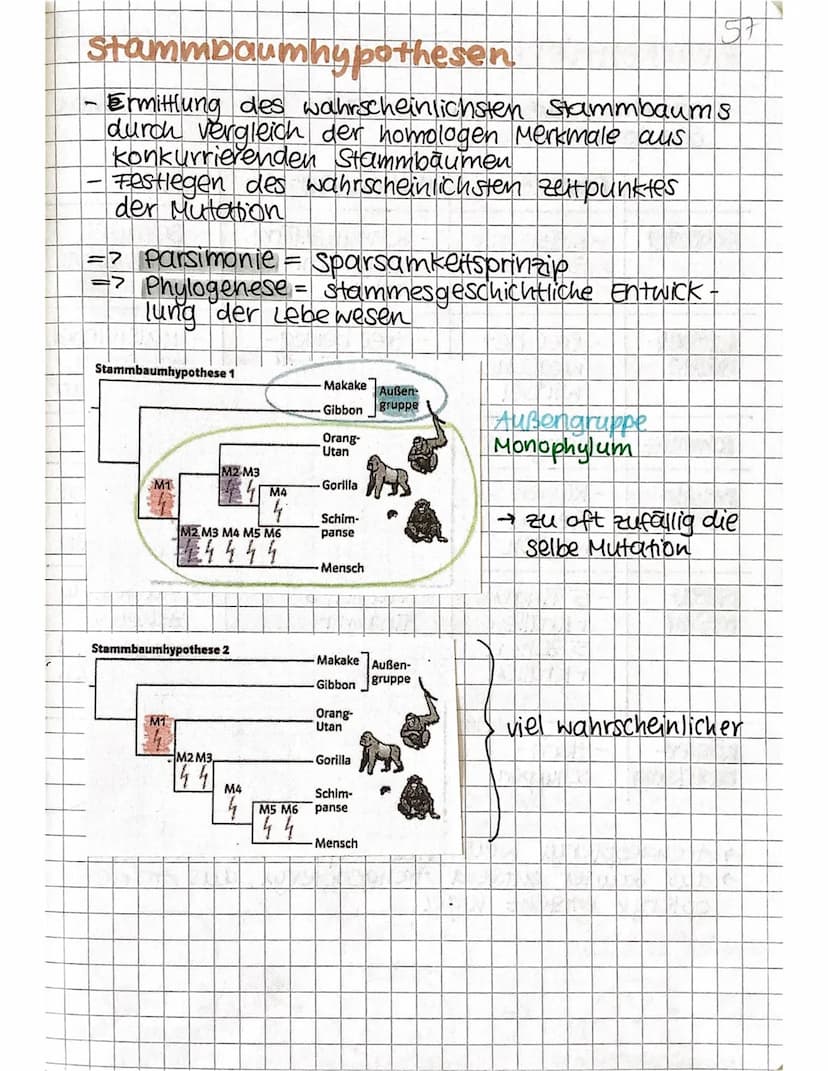 57
Stammbaumhypothesen
- Ermittlung des wahrscheinlichsten Stammbaums
durch Vergleich der homologen Merkmale aus
konkurrierenden Stammbäumen
- Festlegen des wahrscheinlichsten Zeitpunktes
der Mutation
=> Parsimonie = Sparsamkeitsprinzip
=> Phylogenese = stammesgeschichtliche Entwick-
lung der Lebewesen
Stammbaumhypothese 1
Makake
Gibbon
Außen-
gruppe
Orang-
Utan
M2 M3
Gorilla
M1
M4
Schim-
panse
M2 M3 M4 M5 M6
Mensch
Außengruppe
Monophylum
→ zu oft zufällig die
selbe Mutation
Stammbaumhypothese 2
Makake
Gibbon
Außen-
gruppe
Orang-
Utan
M1
M2 M3
Gorilla
M4
Schim-
panse
M5 M6
Mensch
viel wahrscheinlicher